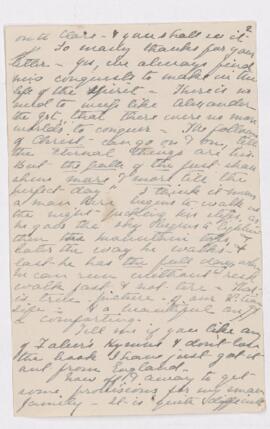 2
on to Clare - & you shall see it.
So many thanks for your
letter - Yes, we always find
new conquests to make in the
life of the Spirit - There is no
need to weep like Alexander
the Grt, that there were no more
worlds to conquer - The follower
of Christ can go on & on, till
the Eternal things are his.
But the path of the just shall
shine more & more till the
perfect day" I think it means
a man here begins to walk in
the night - picking his steps, as
he goes the sky begins to lighten
then the
last he has the full day, when
he can run without rest
walk fast & not tire - That
is true picture - of our
life - & a beautiful and
comforting
Tell me if you like any
of Faber's Hymns & don't
the book I have just got it
out from England.
now off away to get
some provisions for my small
family - It is quite difficult